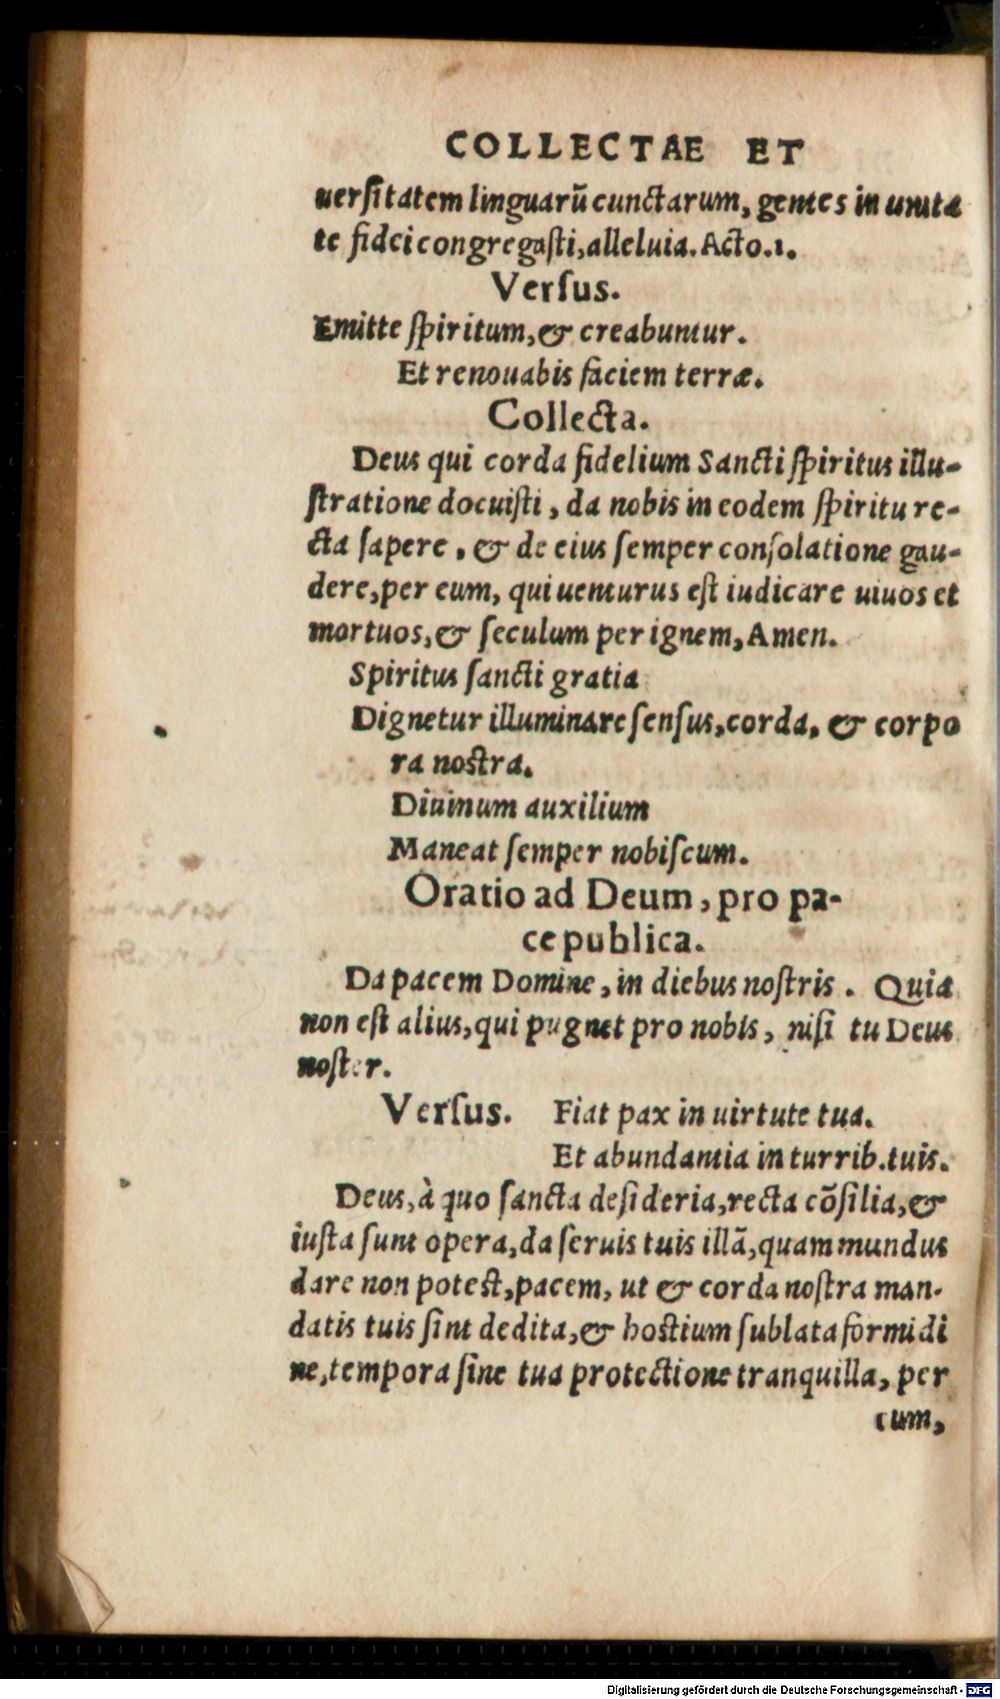 COLLECTAE ET
uerſitatem linguarũ cunctarum, gentes in unita
te fidei congregaſti, alleluia. Acto.1.
Verſus.
Emitte ſpiritum, & creabuntur.
Et renouabis faciem terræ.
Collecta.
Deus qui corda fidelium Sancti ſpiritus illu-
ſtratione docuiſti, da nobis in eodem ſpiritu re-
cta ſapere, & de eius ſemper conſolatione gau-
dere, per eum, qui uenturus eſt iudicare uiuos et
mortuos, & ſeculum per ignem, Amen.
Spiritus ſancti gratia
Dignetur illuminare ſenſus, corda, & corpo
ra nostra.
Diuinum auxilium
Maneat ſemper nobiſcum.
Oratio ad Deum, pro pa-
ce publica.
Da pacem Domine, in diebus noſtris. Quia
non eſt alius, qui pugnet pro nobis, niſi tu Deus
noſter.
Verſus. Fiat pax in uirtute tua.
Et abundantia in turrib. tuis.
Deus, à quo ſancta deſideria, recta cõſilia, &
iuſta ſunt opera, da ſeruis tuis illã, quam mundus
dare non potest, pacem, ut & corda noſtra man-
datis tuis ſint dedita, & hoſtium ſublata formidi
ne, tempora ſine tua protectione tranquilla, per
eum,
Digitalisierung gefördert durch die Deutsche Forschungsgemeinschaft - DFG